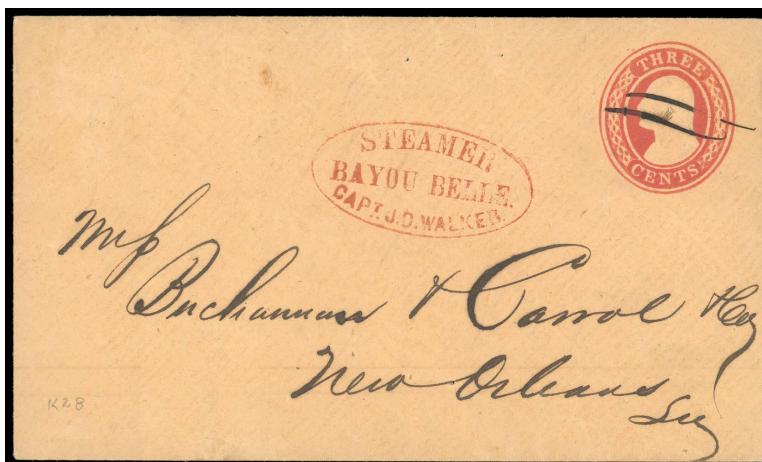 THREE
CENTS
STEAMER
BAYOU BELLE.
CAPT. J.D. WALKER.
Buchannan & Carrol &
New Orleans
K28